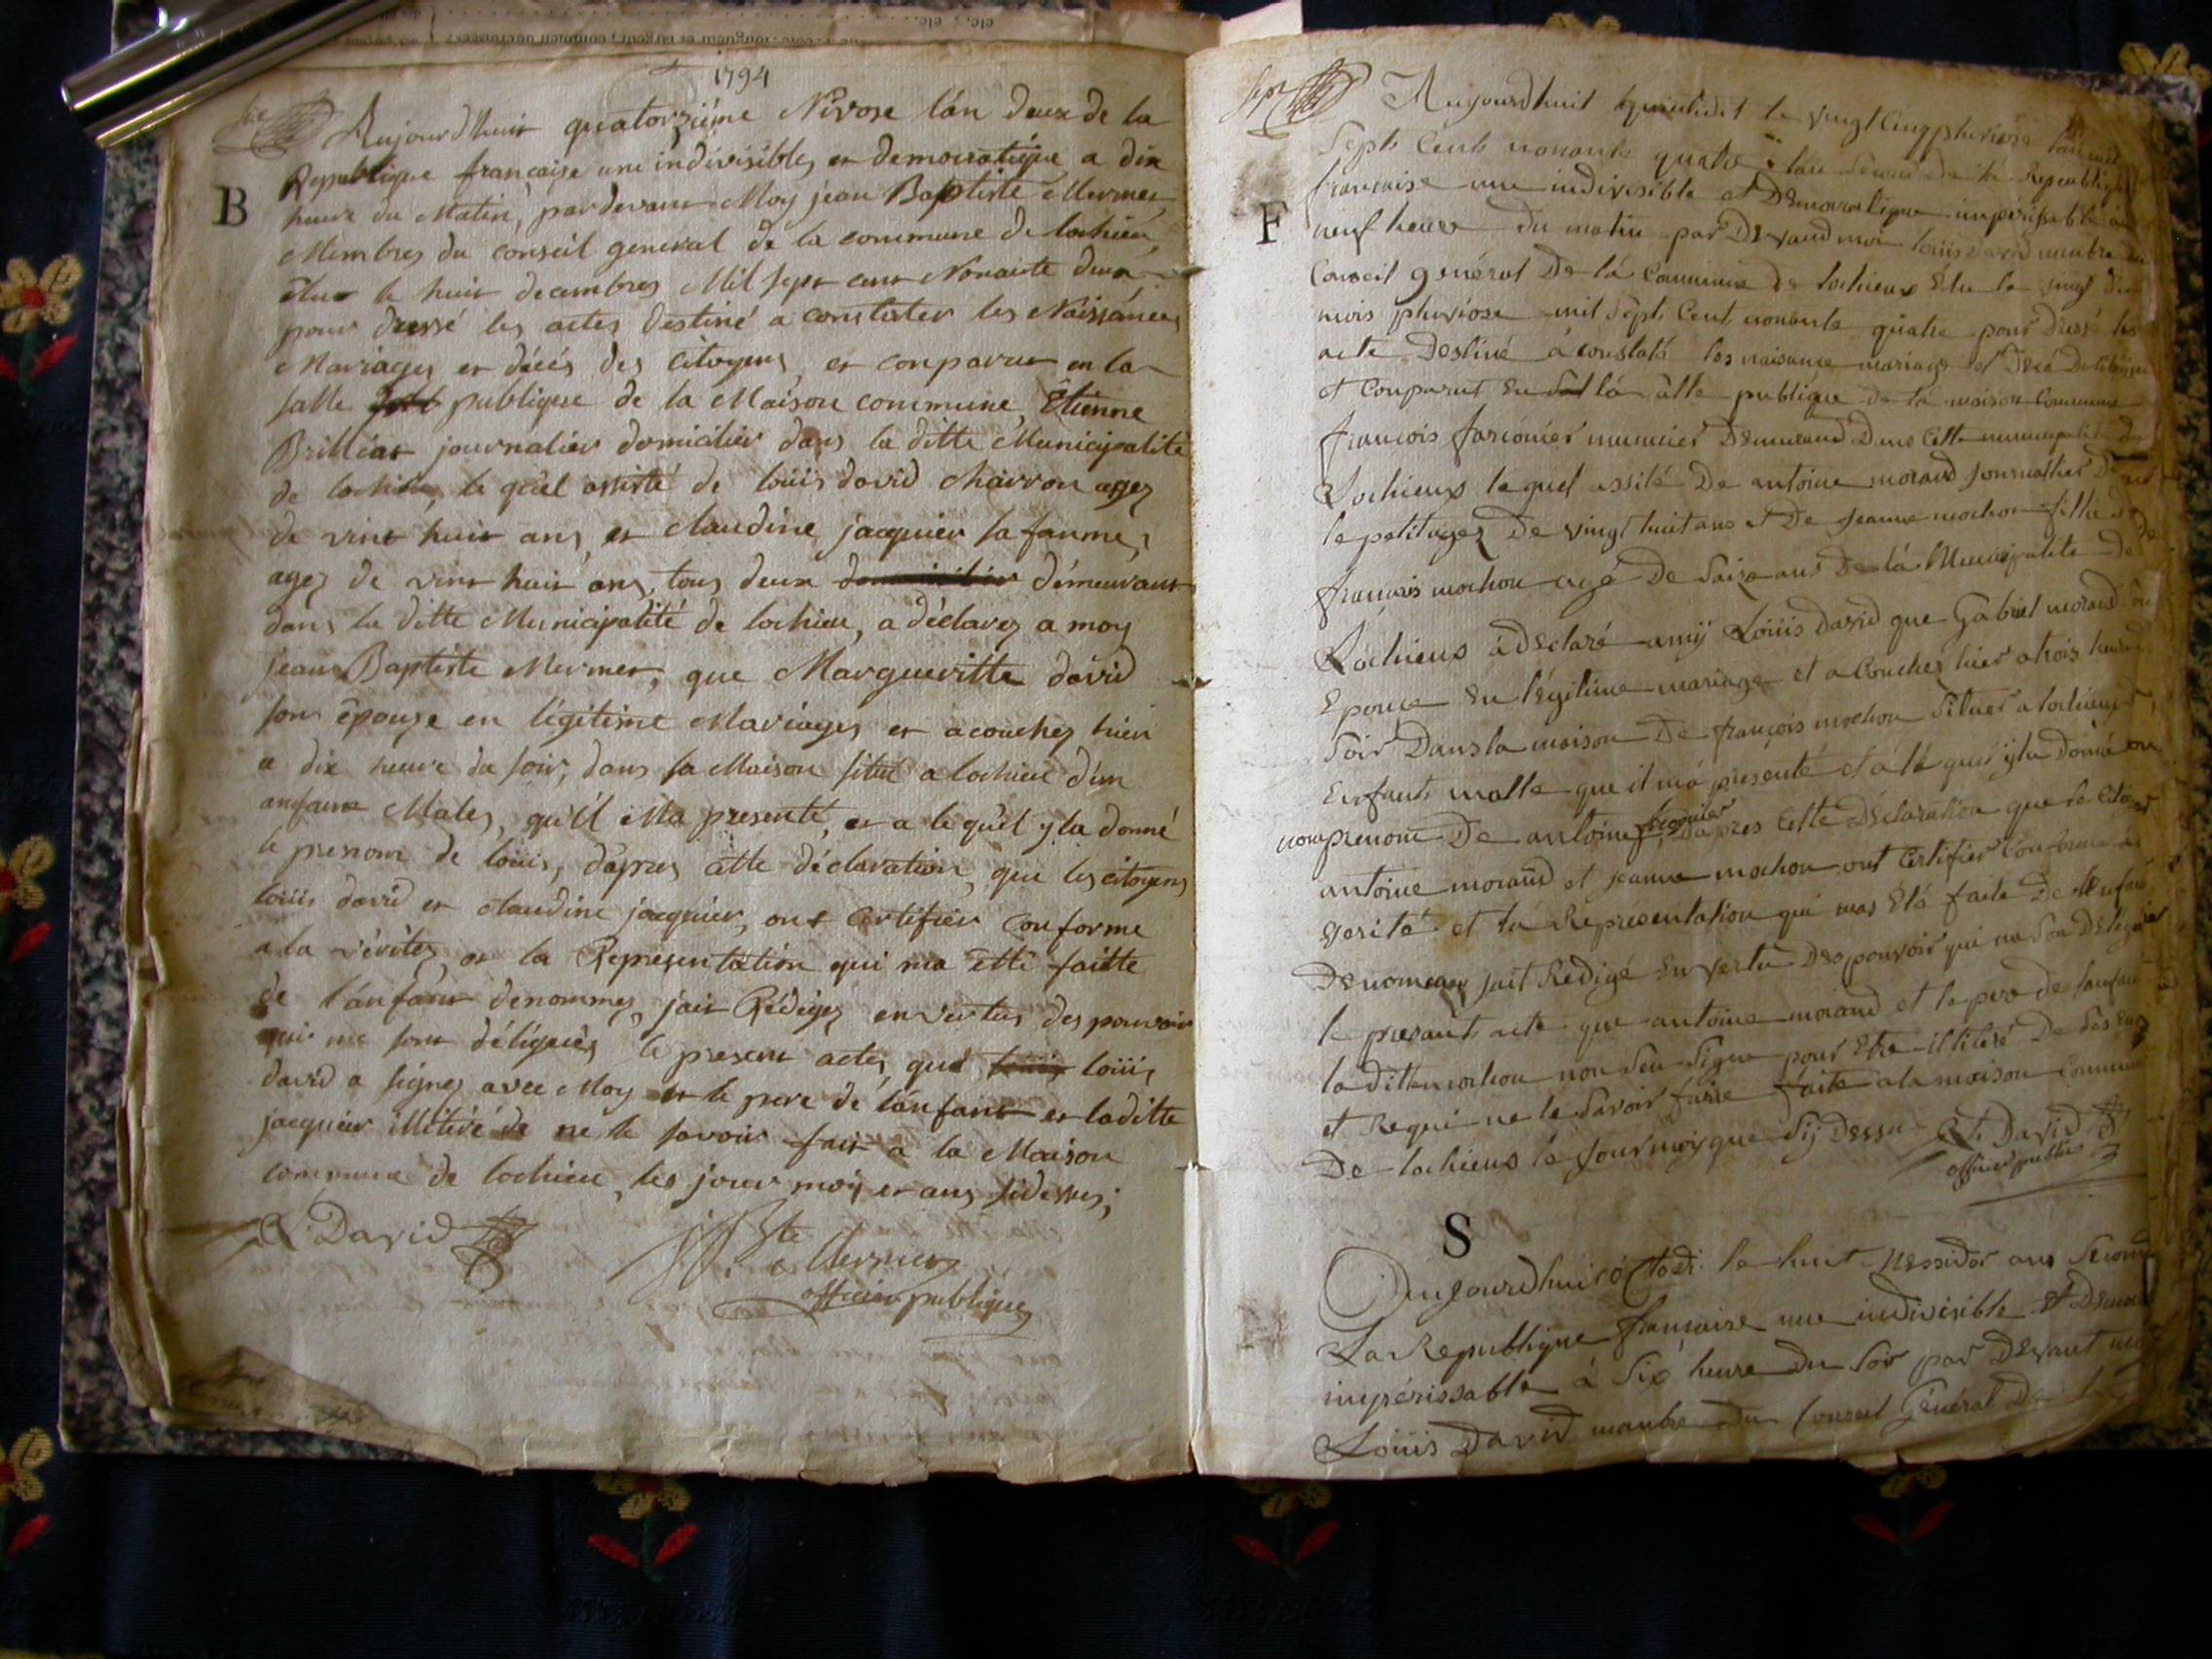 etc., etc.
1794
Six
Aujourdhuit quatorziéme Nivose l'án deux de la
Republique française une indévisibles et democratique a dix
B
heure du Matin, pardevant Moy jean Baptiste Mermet
Membres du conseil general de la commune de lochieu
élut le huit decembres Mil sept cent Nonante deux
pour dressé les actes destiné a constater les Naissances
Mariages et décés des citoyens, et conparut en la
salle publique de la Maison commune, Etienne
Brilliat journalier domicilier dans la ditte Municipalité
de lochieu, le quel assisté de loüis david charron agez
de vint huit ans, et claudine jacquier sa fanme,
agez de vint huit ans, tous deux domicilier démeurant
dans la ditte Municipalité de lochieu, a déclarez a moy
jean Baptiste Mermet, que Margueritte david
son épouse en légitime Mariages et acouchez hier
a dix heure du soir, dans sa Maison situé a lochieu d'un
anfant Males, qu'il Ma presenté, et a le quel y la donné
le prenom de loüis, dápres cette déclaration, que les citoyens
loüis david et claudine jacquier, ont certifier conforme
a la véritez, et la Representation qui ma étté faitte
de l'ánfant denommez, jait Rédigez en vertus des pouvoir
qui me sont délégués le present actes, que louis loüis
david a signez avec Moy et le pere dé lánfant et laditte
jacquier illitéré de ne le savoir fait a la Maison
commune de lochieu, les jour mois et ans sidessus;
David
J Bte Mermet
officier publique
Sept
Aujourdhuit quintidit le vingt cinq pluviose l'an mil
Sept Cent nonante quatre l'an Second de la Republique
françaisse une indivisible et Democratique impérissable à
F
neuf heure du matin par Devand moi loüis David menbre du
Conseil général De lá Commune de lochieux Elu le vingt du
mois pluviose mil Sept Cent nonante quatre pour Dressé les
acte Destiné á constaté les naisance mariage et Decé De
et Comparut En Sal lá salle publique de la maison Commune
françois farconier Demeurand Dans Cette municipalité de
Lochieux lequel assité De antoine morand Journallier Dit
le petit agez De vingt huit ans et De Jeanne mochon fillie de
françois mochon agé De Saize ans De lá Municipalité De
Lochieux á Declaré amÿ Loüis David que Gabriel morand
Epouse En légitime mariage et a Couchez hier a trois heure
Soir Dans la maison De françois mochon Situer a lochieux
Enfant malle que il má presenté et á lé quel y la Donné
nom prenom De antoine farconier, Dapres Cette Déclaration que le Citoyen
antoine morand et jeanne mochon ont Certifier Conforme á
verité et lá Représentation qui mas Eté faite De lenfant
Denommez jait Redigé En Vertu Des pouvoir qui me son Délégué
le presant acte que antoine morand et le pere de lanfant
la ditte mochon non Seu Signe pour Etre illiteré De Ses
et Requi ne le Savoir faire Faite a la maison Commune
De lochieux lé Jour mois que Sÿ Dessu
L. David
officier public
S
Aujourdhui óctodi le huit Messidor ans Second
La Republique française une indivisible Et Democ
impérissable á Six heure Du Soir par Devant moi
Loüis David manbre Du Conseil Général De la